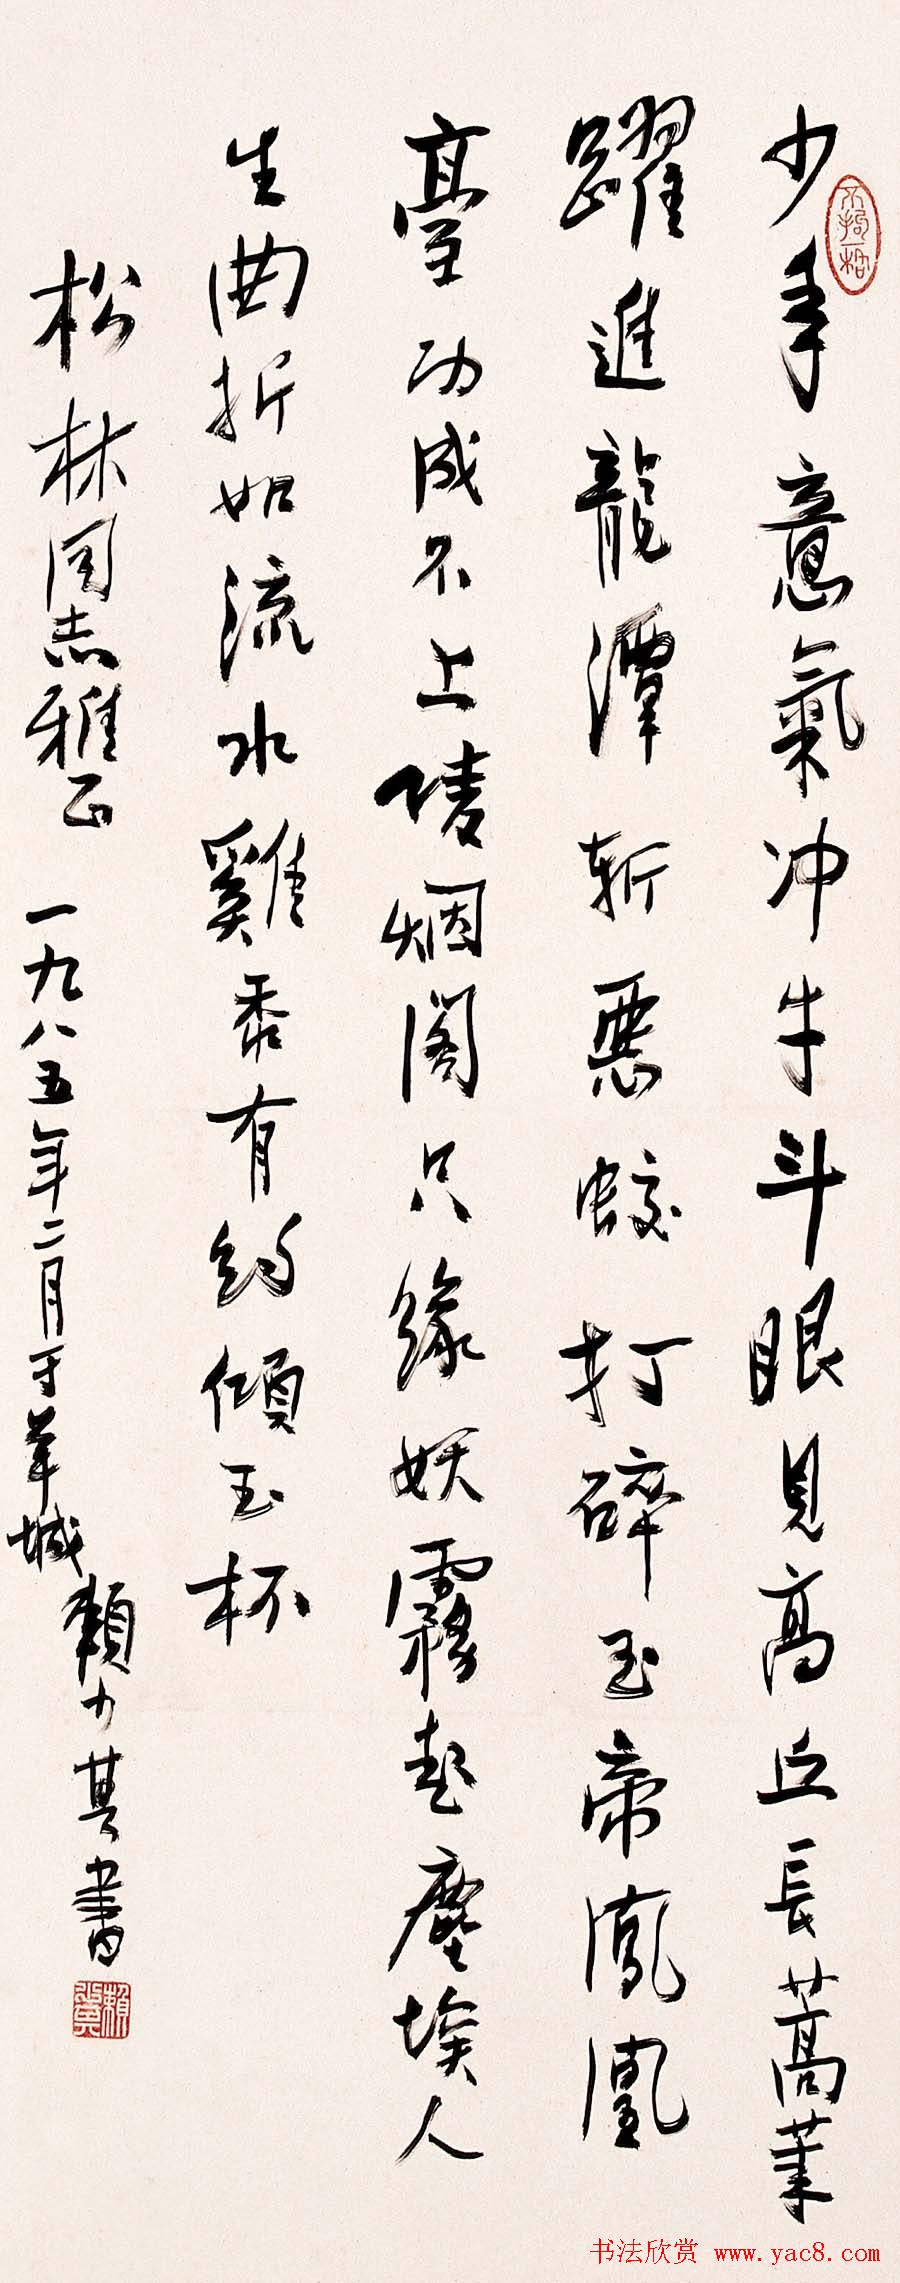 少年意氣冲牛斗眼見高丘長蒿萊
躍進龍潭斬惡蛟打碎玉帝鳳凰
臺功成不上凌烟閣只緣妖霧起塵埃人
生曲折如流水雞黍有約傾玉杯
松林同志雅正 一九八五年二月于羊城賴少其書
不拘一格
賴少其
书法欣赏 www.yac8.com